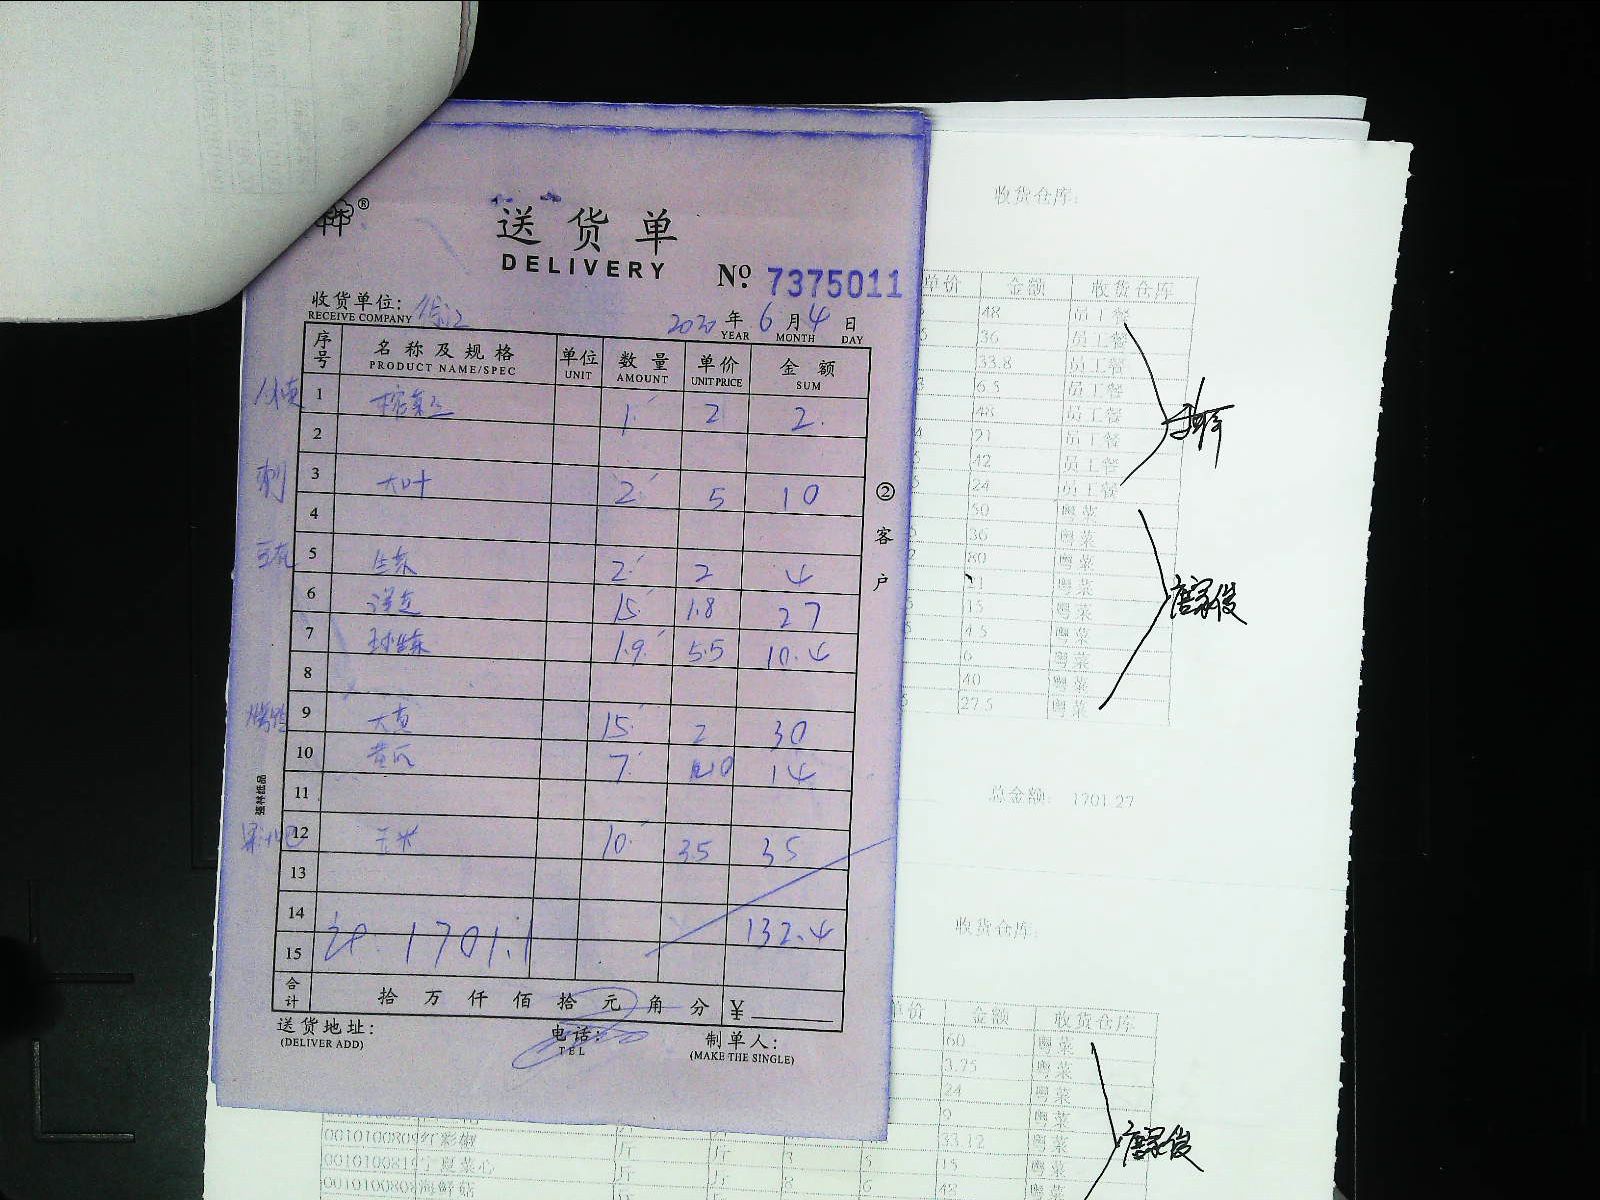 送货单
DELIVERY
№ 7375011
收货单位：
RECEIVE COMPANY
2020 年 6 月 4 日
YEAR MONTH DAY
序号 名称及规格 单位 数量 单价 金额
PRODUCT NAME/SPEC UNIT AMOUNT UNIT PRICE SUM
1 1 2 2
2
刺 3 大叶 2 5 10
4
5 生菜 2 2 4
6 15 1.8 27
7 球生菜 1.9 5.5 10.4
8
烤鸭 9 大 15 2 30
10 黄瓜 7 14
11
果汁吧 12 玉米 10 3.5 35
13
14 132.4
1701.1
15
合计 拾 万 仟 佰 拾 元 角 分 ¥
送货地址：
(DELIVER ADD)
电话：
TEL
制单人：
(MAKE THE SINGLE)
②客户
强林纸品
收货仓库：
单价 金额 收货仓库
48 员工餐
36 员工餐
33.8 员工餐
6.5 员工餐
48 员工餐
91 员工餐
42 员工餐
24 员工餐
50 粤菜
36 粤菜
80 粤菜
粤菜
15 粤菜
4.5 粤菜
6 粤菜
40 粤菜
27.5 粤菜
唐家俊
总金额： 1701.27
收货仓库：
单价 金额 收货仓库
60 粤菜
3.75 粤菜
24 粤菜
9 粤菜
红彩椒 斤 斤 33.12 粤菜
宁夏菜心 斤 斤 3 5 15 粤菜
海鲜菇 斤 斤 8 6 48 粤菜
唐家俊